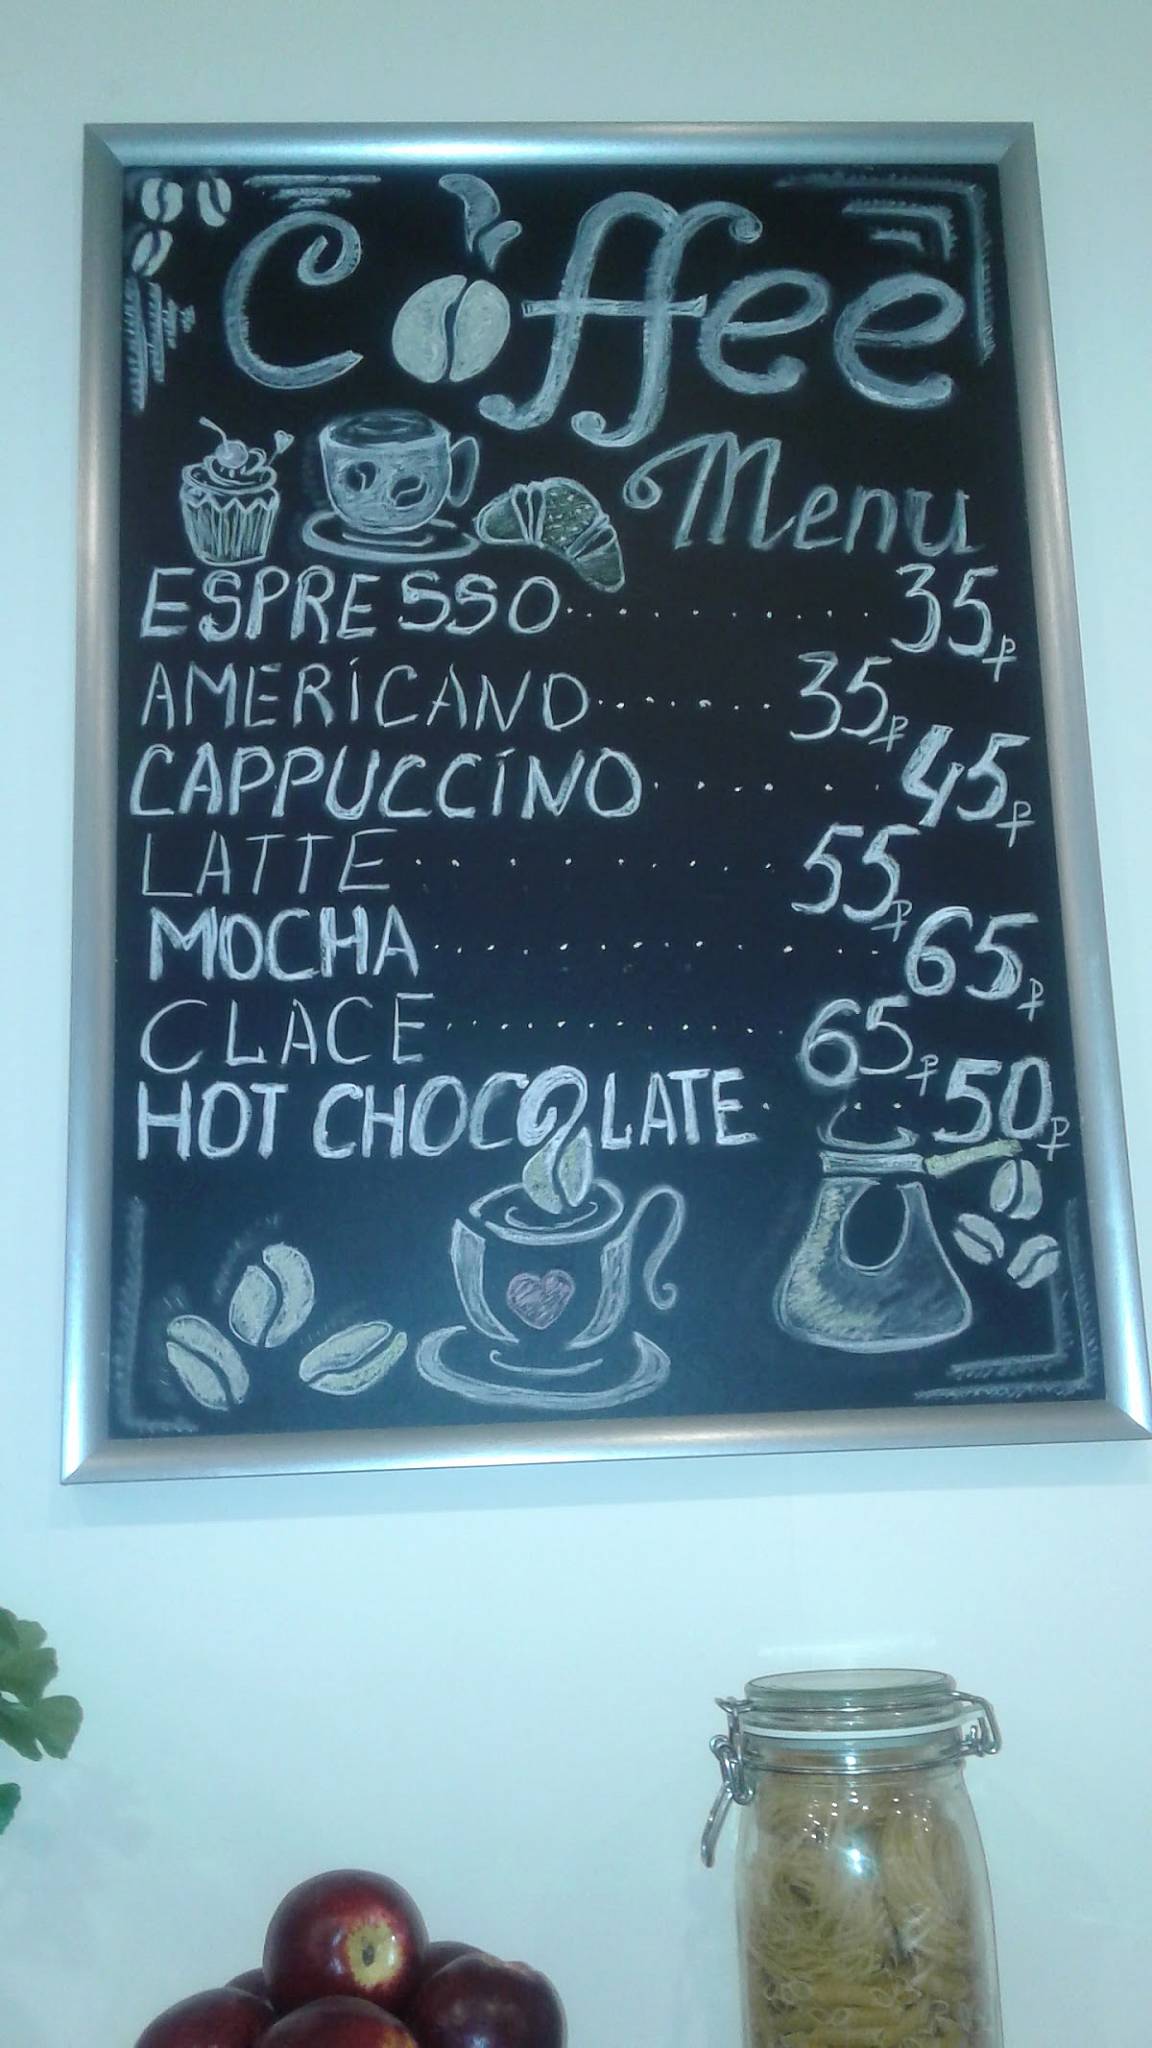 Coffee
Menu
ESPRESSO.......... 35₽
AMERICANO....... 35₽
CAPPUCCINO...... 45₽
LATTE.......... 55₽
MOCHA........... 65₽
CLACE............ 65₽
HOT CHOCOLATE... 50₽